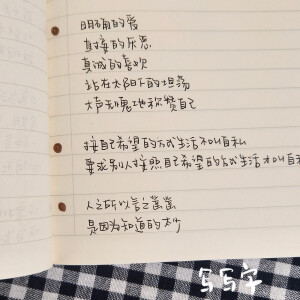 明确的爱
直接的厌恶
真诚的喜欢
站在太阳下的坦荡
大声无愧地称赞自己
按自己希望的方式生活不叫自私
要求别人按照自己希望的方式生活才叫自私
人之所以言之凿凿
是因为知道的太少
写写字